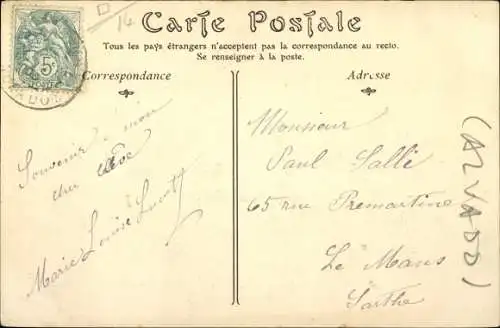 14
Carte Postale
Tous les pays étrangers n'acceptent pas la correspondance au recto.
Se renseigner à la poste.
Correspondance
Adresse
5c
Souvenir à mon
cher
Marie Louise
Monsieur
Paul Salle
65 rue Premartine
Le Mans
Sarthe
(CALVADOS)